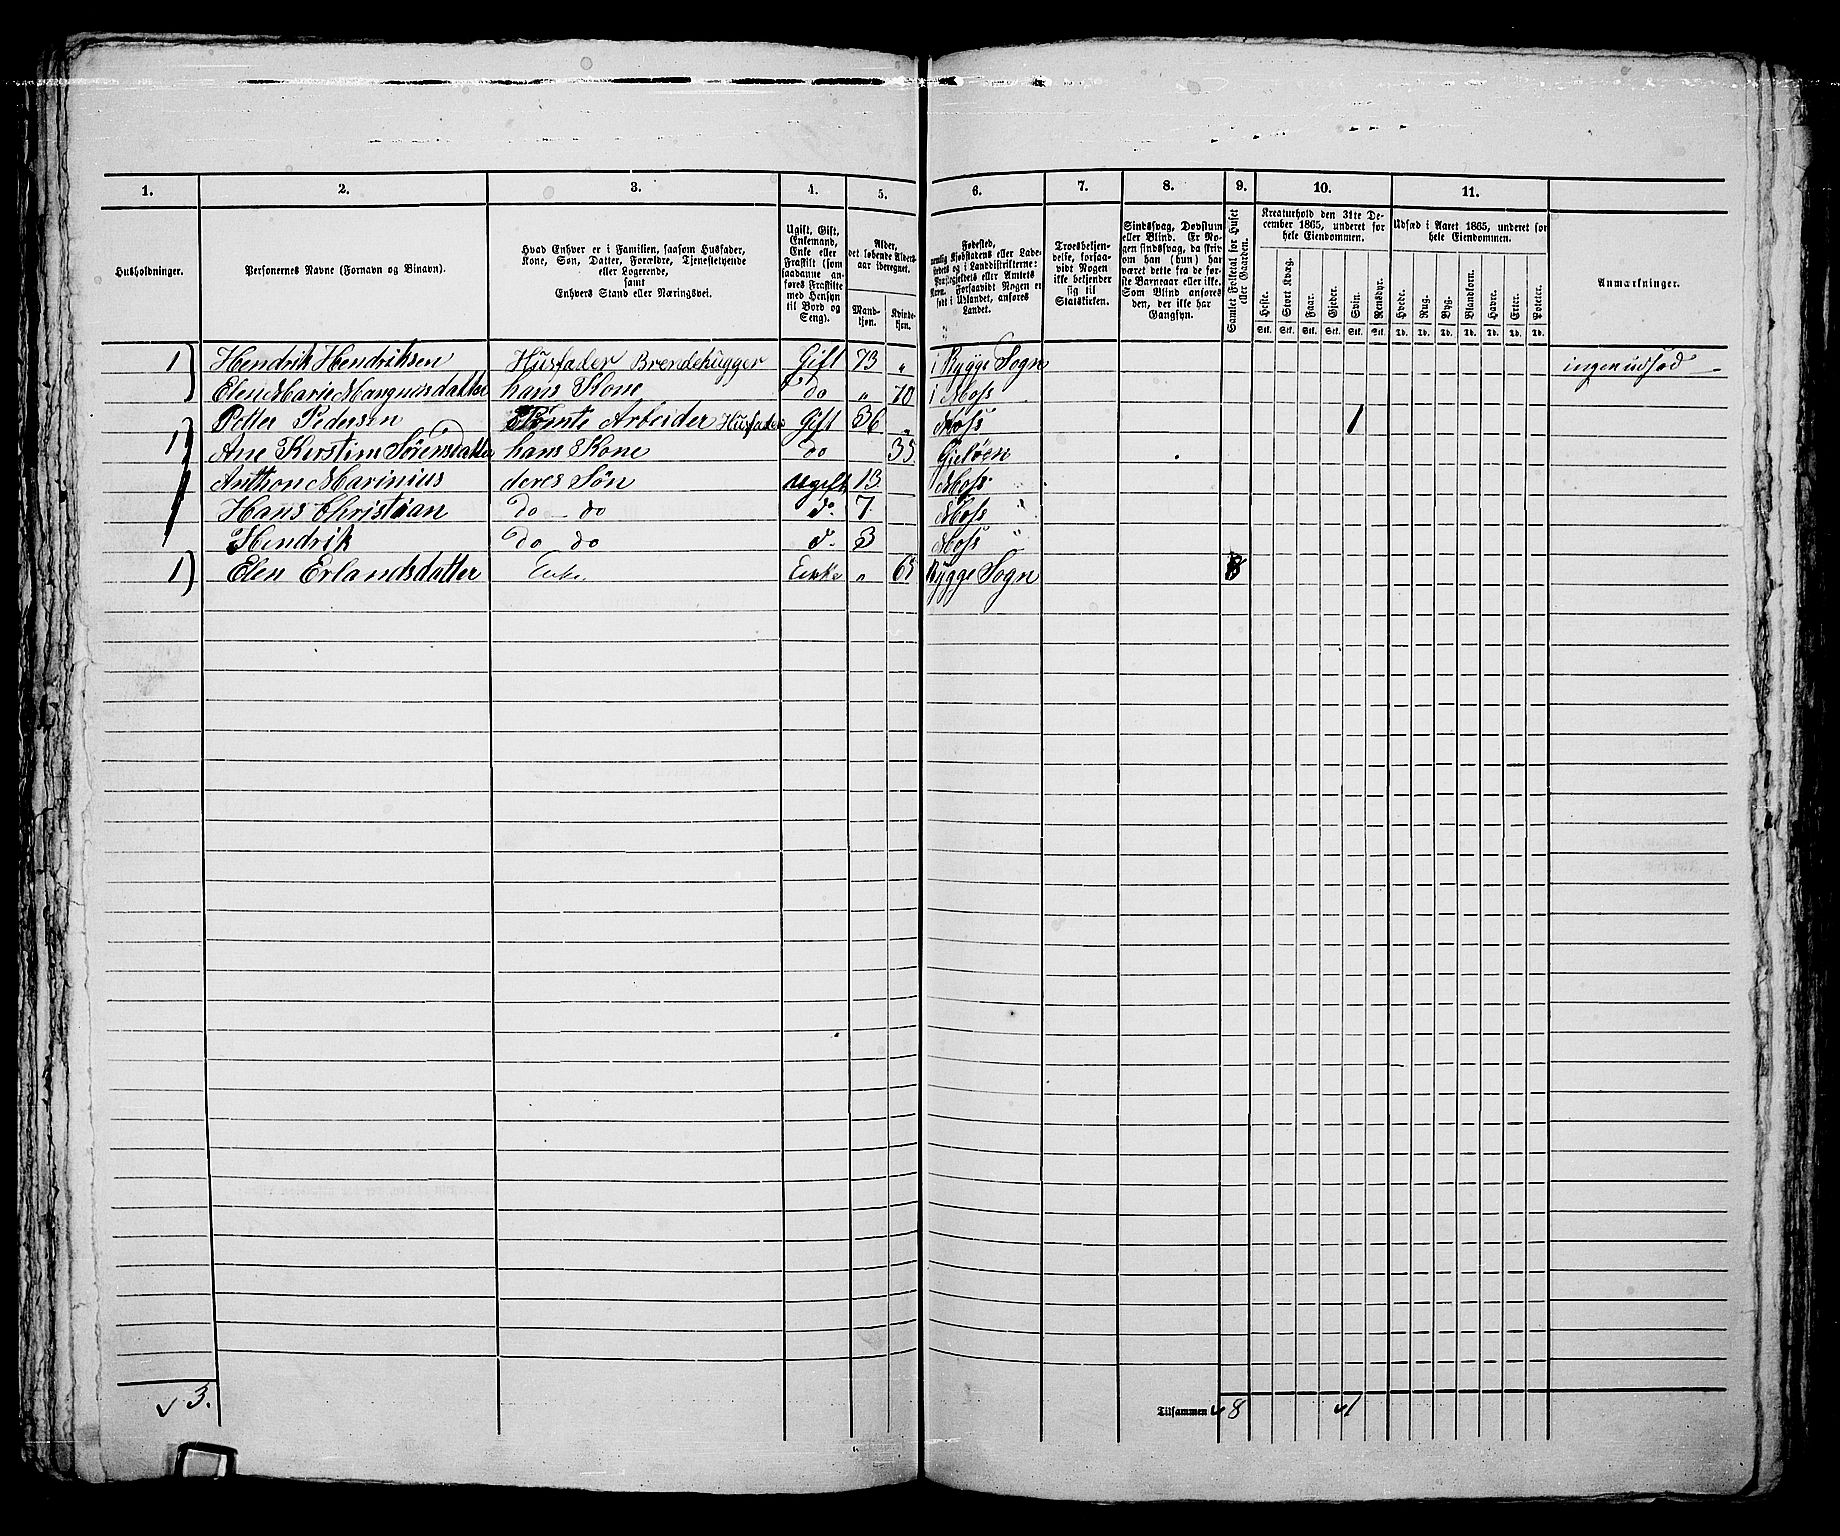 1. 2. 3. 4. 5. 6. 7. 8. 9. 10. 11.
Husholdninger.
Personernes Navne (Fornavn og Binavn).
Hvad Enhver er i Familien, saasom Husfader,
Kone, Søn, Datter, Forældre, Tjenestetyende
eller Logerende,
samt
Enhvers Stand eller Næringsvei.
Ugift, Gift,
Enkemand,
Enke eller
Fraskilt (som
saadanne an-
føres Fraskilte
med Hensyn
til Bord og
Seng).
Alder,
det løbende Alders-
aar iberegnet.
Mand-
kjøn.
Kvinde-
kjøn.
Fødested,
nemlig Kjøbstadens eller Lade-
stedets og i Landdistrikterne:
Præstegjeldets eller Amtets
Navn. Forsaavidt Nogen er
født i Udlandet, anføres
Landet.
Troesbekjen-
delse, forsaa-
vidt Nogen
ikke bekjender
sig til
Statskirken.
Sindssvag, Døvstum
eller Blind. Er No-
gen sindssvag, da skriv
om han (hun) har
været dette fra de før-
ste Barneaar eller ikke.
Som Blind anføres
den, der ikke har
Gangsyn.
Samlet Folketal for Huset
eller Gaarden.
Kreaturhold den 31te De-
cember 1865, underet for
hele Eiendommen.
Heste. Stort Kvæg. Faar. Gjeder. Svin. Rensdyr.
Stk. Stk. Stk. Stk. Stk. Stk.
Udsæd i Aaret 1865, underet for
hele Eiendommen.
Hvede. Rug. Byg. Blandkorn. Havre. Erter. Poteter.
Td. Td. Td. Td. Td. Td. Td.
Anmærkninger.
1 Hendrik Hendriksen Husfader Brendehugger Gift 73 „ i Rygge Sogn ingen udsæd
Elen Marie Mangnusdatter hans Kone Do „ 70 i Moss
1 Petter Pedersen Tomte Arbeider Husfader Gift 36 „ Moss 1
Ane Kirstine Sørensdatter hans Kone Do 35 Gjeløen
Anthon Marinius deres Søn Ugift 13 Moss
Hans Christian Do - do d. 7 Moss "
Hendrik Do do d. 3 Moss "
1 Elen Erlandsdatter Enke Enke „ 65 Rygge Sogn 8
3. Tilsammen 8 1